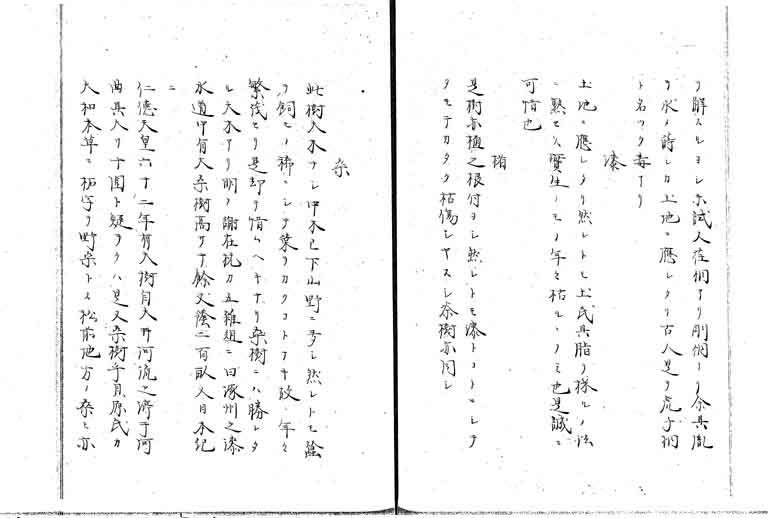 ヲ解スルヨシ亦試人在桐アリ剛桐ナリ余其胤
ヲ求メ蒔シカ土地ニ應シタリ古人是ヲ虎子桐
ト名ツク毒アリ
漆
土地ニ應シタリ然レトモ土民其脂ヲ採ルノ法
ニ熟セス實生ノモノ年々枯ルヽノミ也是誠ニ
可惜也
楮
是樹亦植之根付ヨシ然レトモ漆トコトニシテ
タモチカタク枯傷シヤスシ茶樹亦同シ
桑
此樹大木ナシ中木已下山野ニ多シ然レトモ蠶
ヲ飼モノ稀ニシテ葉ヲカクコトナキ故年々
繁茂セリ是却テ惜ムヘキナリ桑樹ニハ勝レタ
ル大木アリ明ノ謝在杭カ五雜組ニ曰涿州之漆
水道中有大桑樹高サ十餘丈蔭二百畝又日本紀
ニ
仁德天皇六十二年有大樹自大井河流之濟于河
曲其大サ十圍ト疑ラクハ是又桑樹乎貝原氏カ
大和本草ニ柘字ヲ野桑トス松前地方ノ桑モ亦